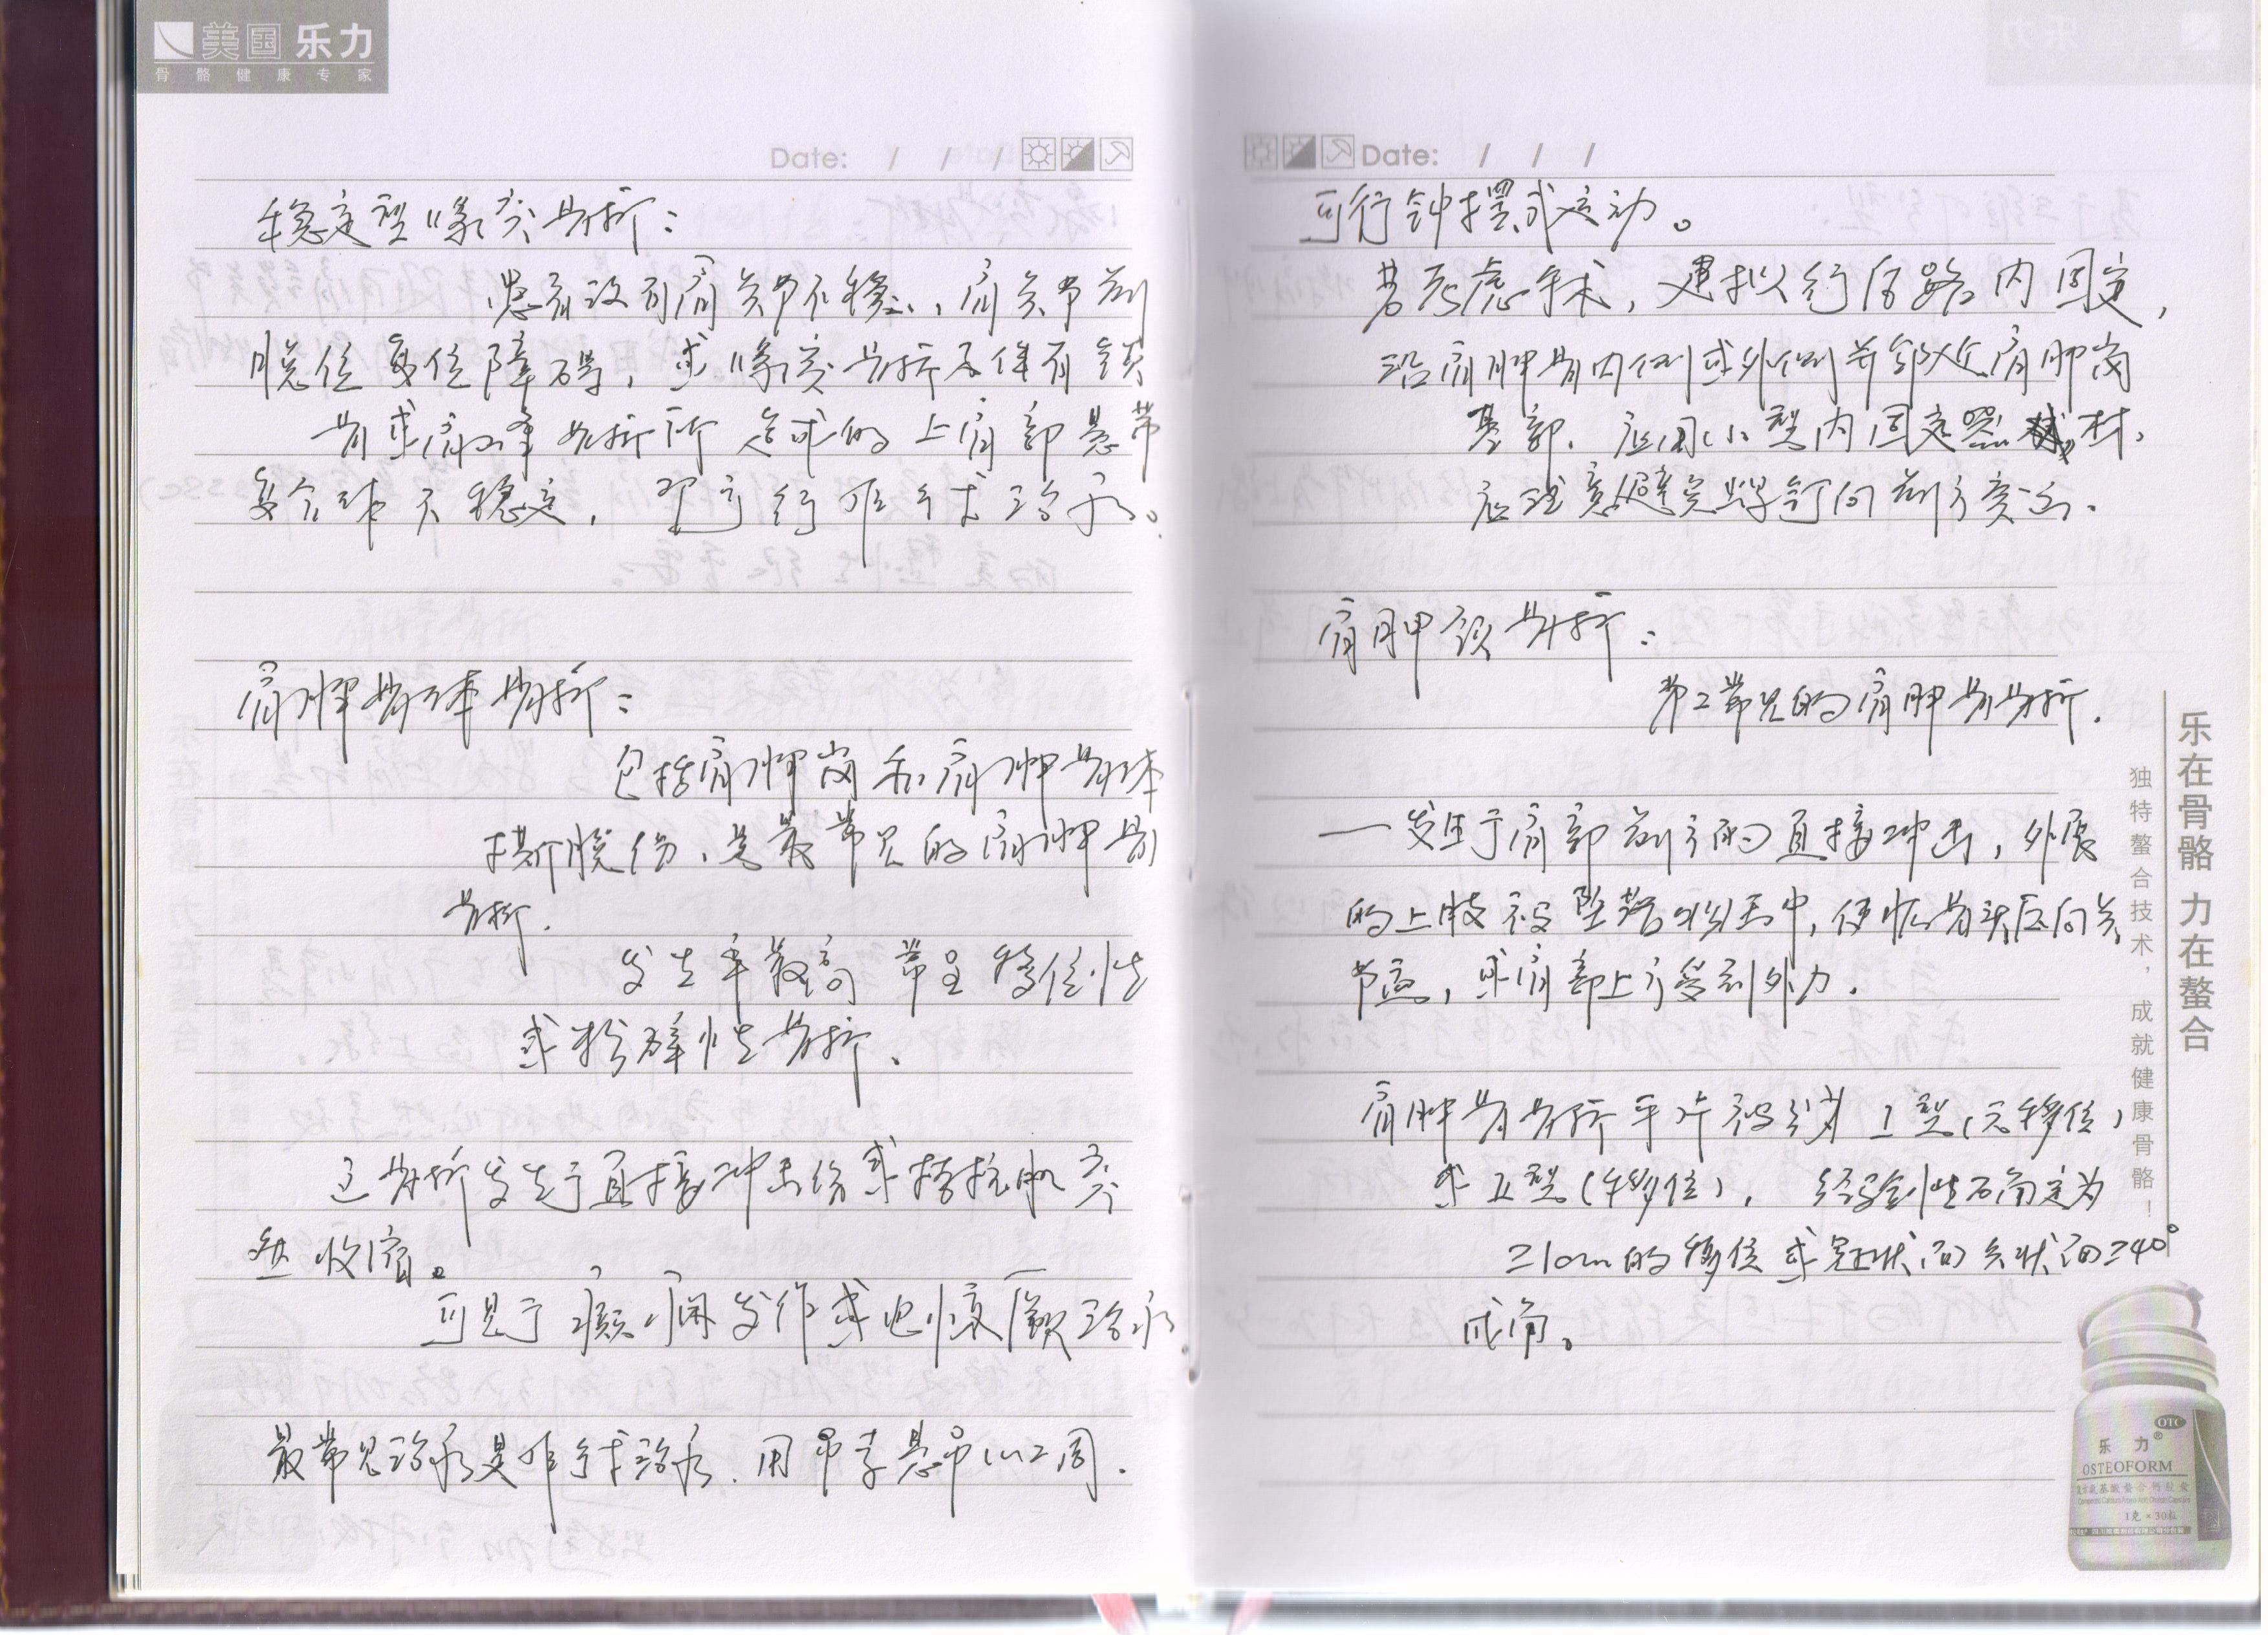 美国乐力
骨骼健康专家
Date: / / /
稳定型喙突骨折：
患者没有肩关节不稳、肩关节前
脱位复位障碍，或喙突骨折不伴有锁
骨或肩峰骨折所造成的上肩部悬带
复合体不稳定，可行非手术治疗。
肩胛骨体骨折：
包括肩胛岗和肩胛骨体
撕脱伤、是最常见的肩胛骨
骨折.
发生率最高 常呈移位性
或粉碎性骨折、
骨折发生于直接冲击伤或拮抗肌突
然收缩。
可见于癫痫发作或电惊厥治疗
最常见治疗是非手术治疗.用吊带悬吊1~2周.
Date: / / /
可行钟摆式运动。
若考虑手术，建拟行后路内固定，
沿肩胛骨内侧或外侧并邻近肩胛岗
基部.应用小型内固定器材，
应注意避免螺钉向前方突出.
肩胛颈骨折：
第2常见的肩胛骨骨折.
一发生于肩部前方的直接冲击，外展
的上肢被坠落物击中，使肱骨头反向关
节盂，或肩部上方受到外力.
肩胛骨骨折平片被分为I型(无移位)
或II型(移位)， 经验性石确定为
≥1cm的移位或冠状面矢状面≥40°
成角。
乐在骨骼 力在螯合
独特螯合技术，成就健康骨骼！
OTC
乐力®
OSTEOFORM
1克×30粒